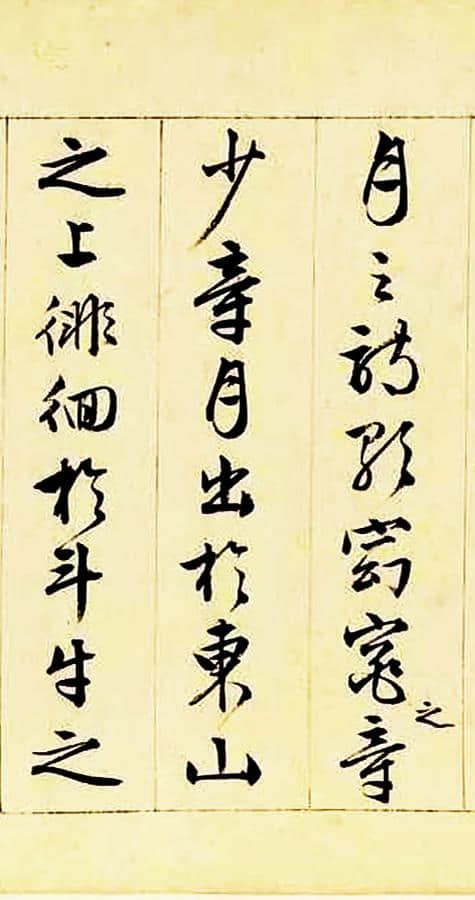 月之詩歌窈窕之章
少焉月出於東山
之上徘徊於斗牛之